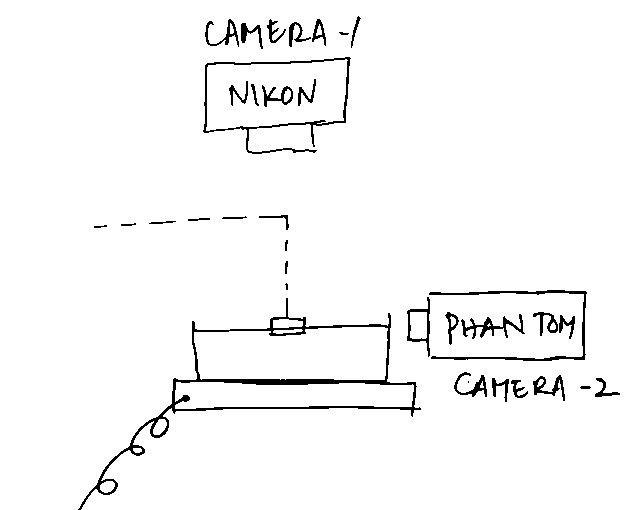 CAMERA-1
NIKON
PHANTOM
CAMERA-2